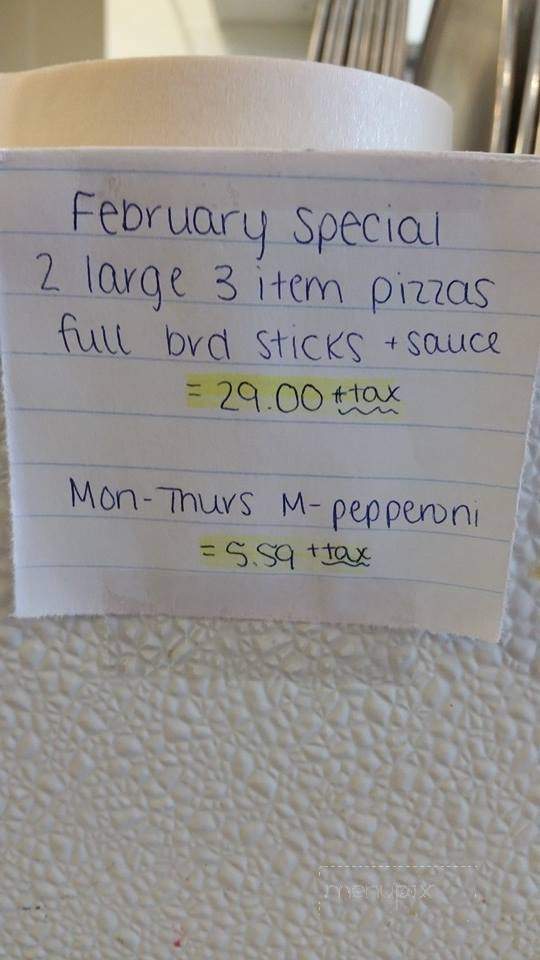 February special
2 large 3 item pizzas
full brd sticks + sauce
= 29.00 +tax
Mon-Thurs M-pepperoni
= 5.59 +tax
menupix